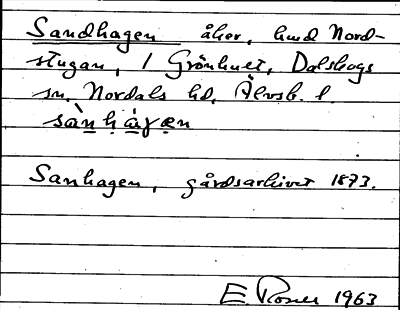 Sandhagen åker, hmd Nord-
stugan, 1 Grönhult, Dalskogs
sn, Nordals hd, Älvsb. l.
sànhàgen
Sanhagen, gårdsarkivet 1873.
E. Rosell 1963